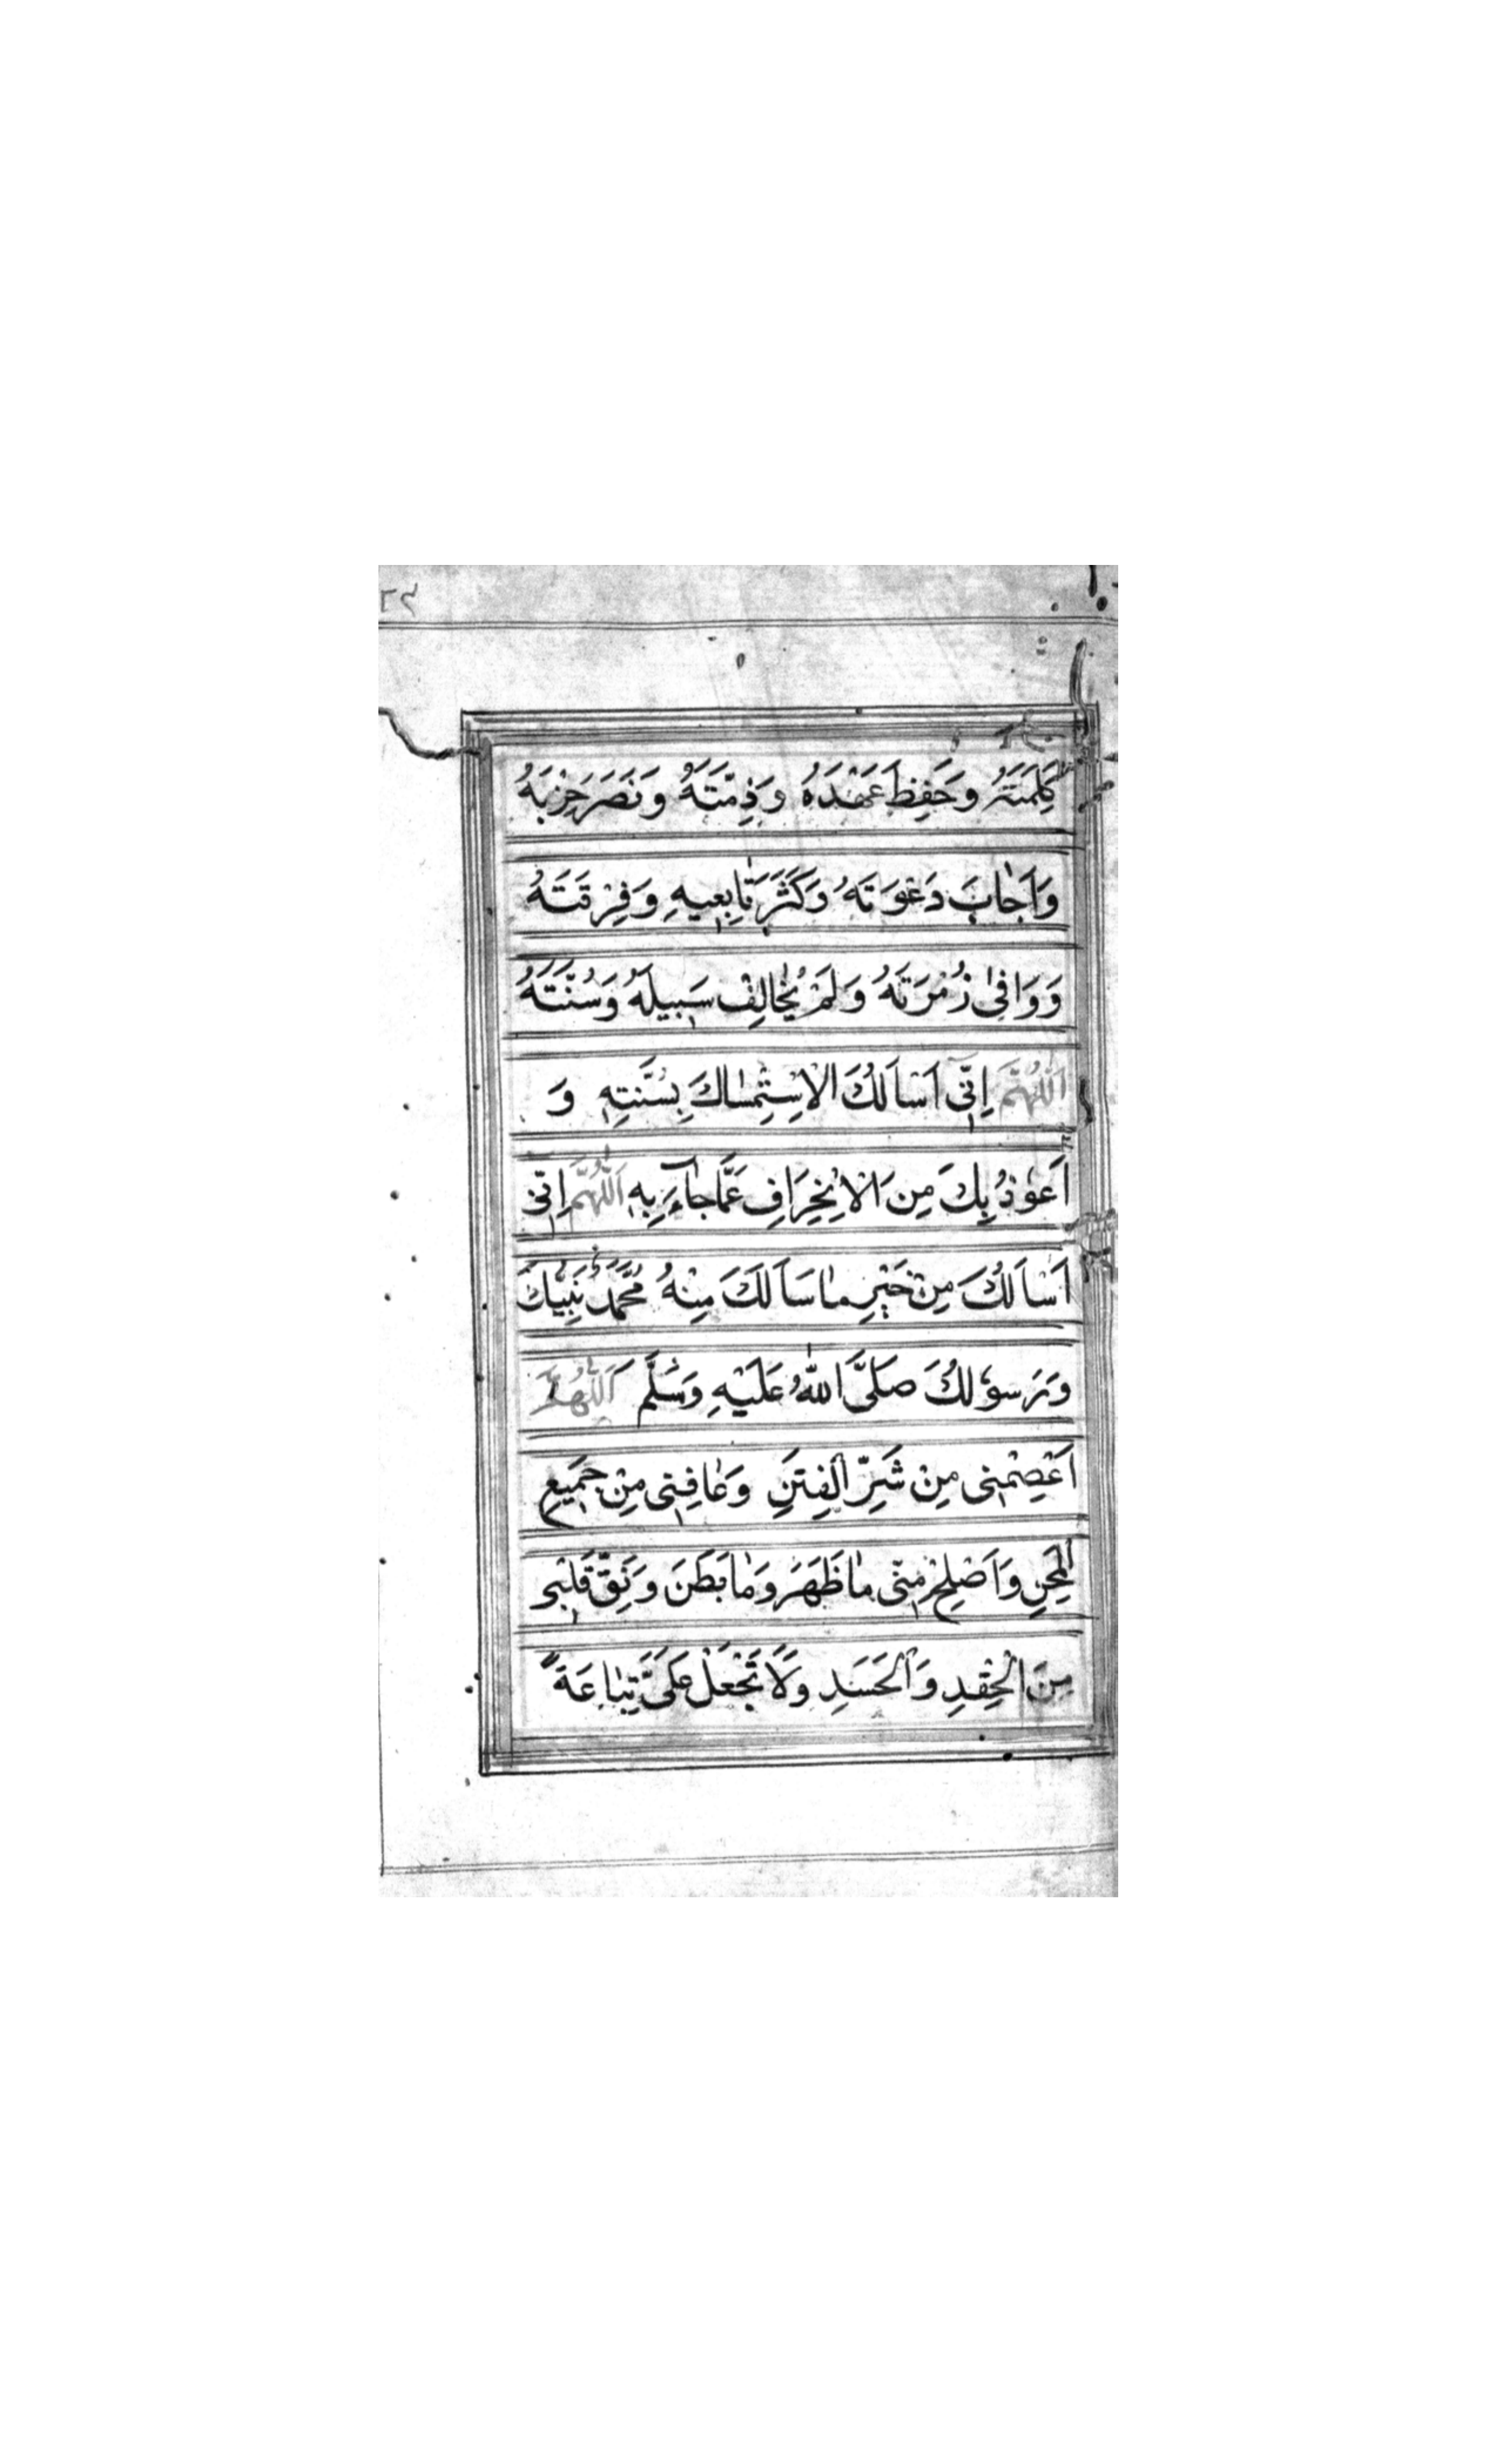 ٢٤
كَلِمَتَهُ وَحَفِظَ عَهْدَهُ وَذِمَّتَهُ وَنَصَرَ حِزْبَهُ
وَاَجَابَ دَعْوَتَهُ وَكَثَّرَ تَابِعِيهِ وَفِرْقَتَهُ
وَوَافٰى زُمْرَتَهُ وَلَمْ يُخَالِفْ سَبِيلَهُ وَسُنَّتَهُ
اَللّٰهُمَّ اِنِّى اَسْاَلُكَ الْاِسْتِمْسَاكَ بِسُنَّتِهِ وَ
اَعُوْذُ بِكَ مِنَ الْاِنْحِرَافِ عَمَّا جَاۤءَ بِهِ اَللّٰهُمَّ اِنِّى
اَسْاَلُكَ مِنْ خَيْرِ مَا سَاَلَكَ مِنْهُ مُحَمَّدٌ نَبِيُّكَ
وَرَسُوْلُكَ صَلَّى اللّٰهُ عَلَيْهِ وَسَلَّمَ اَللّٰهُمَّ
اَعْصِمْنِى مِنْ شَرِّ الْفِتَنِ وَعَافِنِى مِنْ جَمِيعِ
الْمِحَنِ وَاَصْلِحْ مِنِّى مَا ظَهَرَ وَمَا بَطَنَ وَنَقِّ قَلْبِى
مِنَ الْحِقْدِ وَالْحَسَدِ وَلَا تَجْعَلْ عَلَىَّ تِبَاعَةً